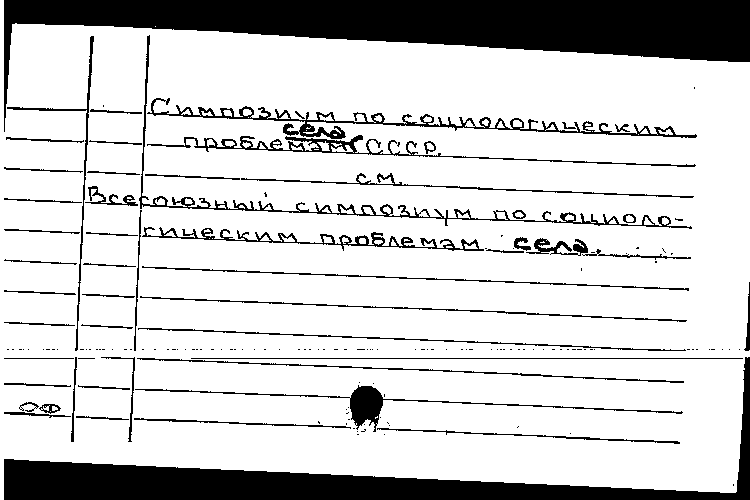 Симпозиум по социологическим
села
проблемам СССР.
см.
Всесоюзный симпозиум по социоло-
гическим проблемам села.
ОФ